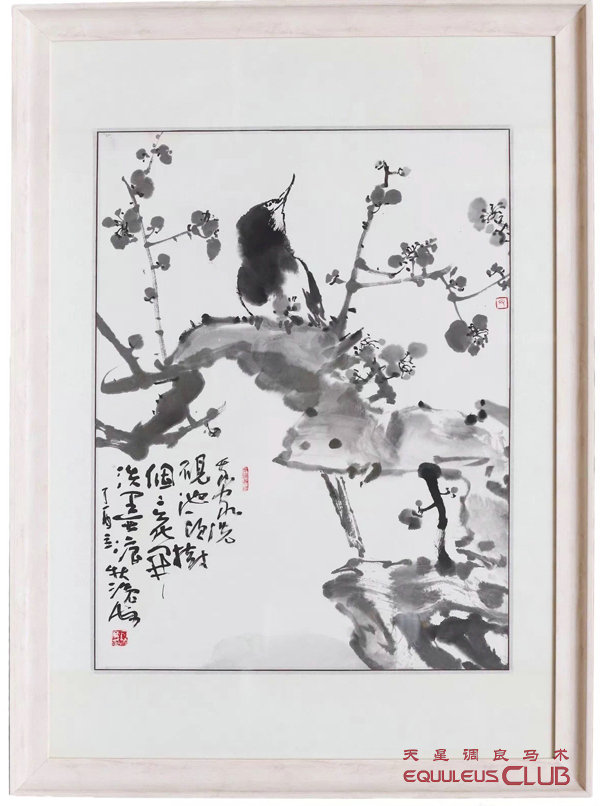 吾家洗
硯池頭樹
個々花開
淡墨痕
丁酉
天星调良马术
EQUULEUS CLUB